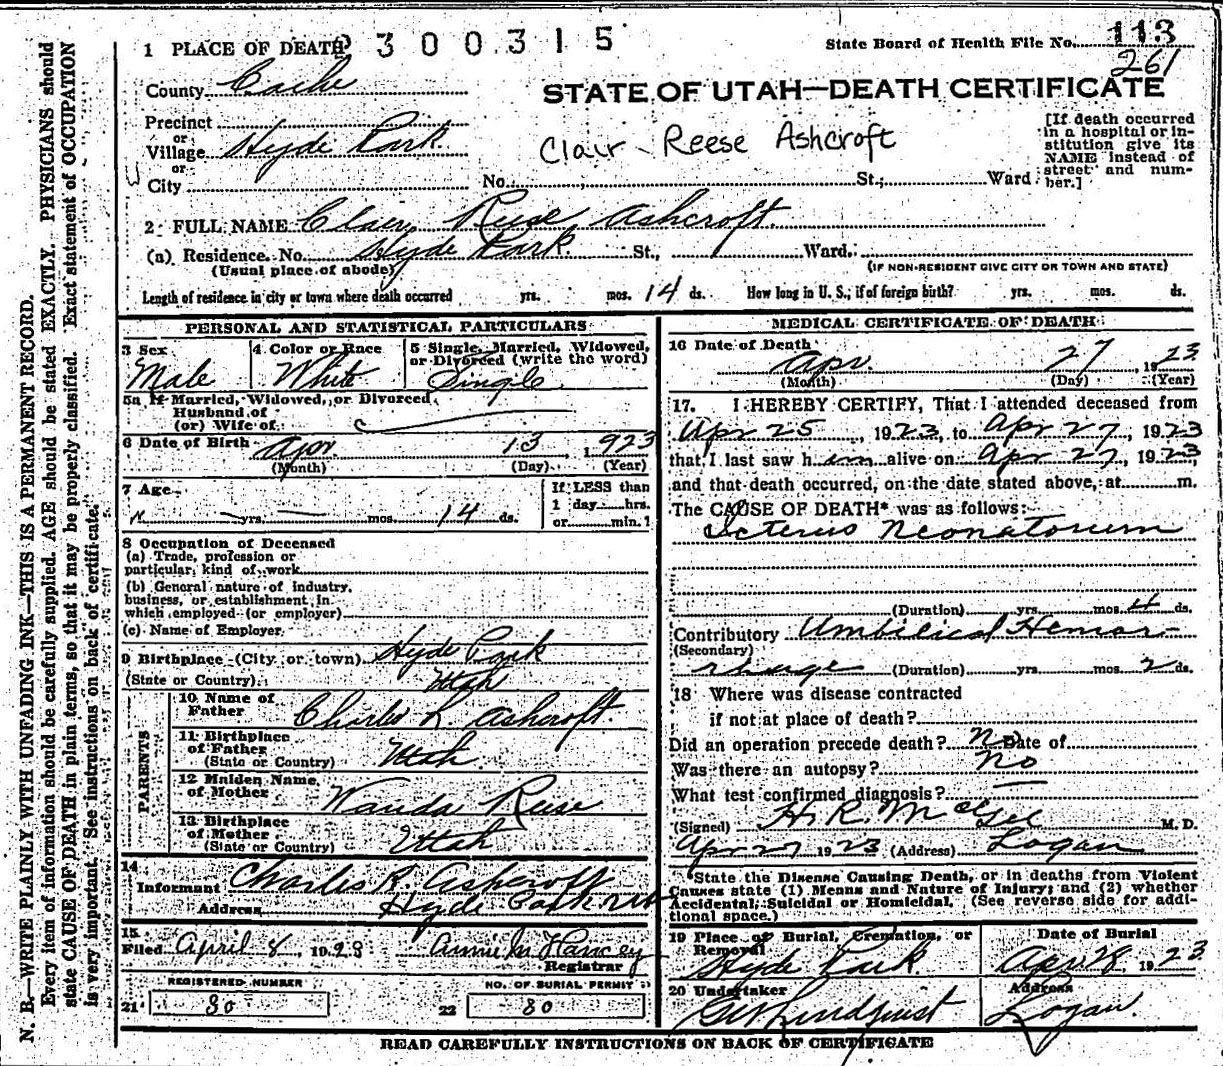 1 PLACE OF DEATH
2300315
State Board of Health File No. 113
261
County Cache
STATE OF UTAH—DEATH CERTIFICATE
Precinct
or
Village Hyde Park
or
City
Clair Reese Ashcroft
[If death occurred in a hospital or institution give its NAME instead of street and number.]
No. St.; Ward
2 FULL NAME Clair Reese Ashcroft.
(a) Residence. No. Hyde Park. St., Ward.
(Usual place of abode)
(IF NON-RESIDENT GIVE CITY OR TOWN AND STATE)
Length of residence in city or town where death occurred yrs. mos. 14 ds. How long in U. S., if of foreign birth? yrs. mos. ds.
PERSONAL AND STATISTICAL PARTICULARS
3 Sex
Male
4 Color or Race
White
5 Single, Married, Widowed, or Divorced (write the word)
Single
5a If Married, Widowed, or Divorced
Husband of
(or) Wife of
6 Date of Birth Apr 13, 1923
(Month) (Day) (Year)
7 Age
yrs. mos. 14 ds.
If LESS than
1 day hrs.
or min. ?
8 Occupation of Deceased
(a) Trade, profession or
particular kind of work
(b) General nature of industry,
business, or establishment in
which employed (or employer)
(c) Name of Employer
9 Birthplace (City or town) Hyde Park
(State or Country) Utah
PARENTS
10 Name of
Father Charles R. Ashcroft.
11 Birthplace
of Father
(State or Country) Utah.
12 Maiden Name
of Mother Wanda Reese
13 Birthplace
of Mother
(State or Country) Utah
14
Informant Charles R. Ashcroft
Address Hyde Park Utah
15
Filed April 8, 1923 Annie M Hancey
Registrar
REGISTERED NUMBER
21 80
NO. OF BURIAL PERMIT
22 80
MEDICAL CERTIFICATE OF DEATH
16 Date of Death
Apr. 27, 1923
(Month) (Day) (Year)
17. I HEREBY CERTIFY, That I attended deceased from
Apr 25, 1923, to Apr 27, 1923
that I last saw him alive on Apr 27, 1923,
and that death occurred, on the date stated above, at m.
The CAUSE OF DEATH* was as follows:
Icterus Neonatorum
(Duration) yrs. mos. 4 ds.
Contributory Umbilical Hemor-
(Secondary)
rhage (Duration) yrs. mos. 2 ds.
18 Where was disease contracted
if not at place of death?
Did an operation precede death? No Date of
Was there an autopsy? No
What test confirmed diagnosis?
(Signed) H. R. McGee M. D.
Apr 27 1923 (Address) Logan
*State the Disease Causing Death, or in deaths from Violent
Causes state (1) Means and Nature of Injury; and (2) whether
Accidental, Suicidal or Homicidal. (See reverse side for addi-
tional space.)
19 Place of Burial, Cremation, or
Removal
Hyde Park
Date of Burial
Apr 28, 1923
20 Undertaker
Lindquist
Address
Logan.
READ CAREFULLY INSTRUCTIONS ON BACK OF CERTIFICATE
N. B.—WRITE PLAINLY WITH UNFADING INK—THIS IS A PERMANENT RECORD.
Every item of information should be carefully supplied. AGE should be stated EXACTLY. PHYSICIANS should
state CAUSE OF DEATH in plain terms, so that it may be properly classified. Exact statement of OCCUPATION
is very important. See instructions on back of certificate.